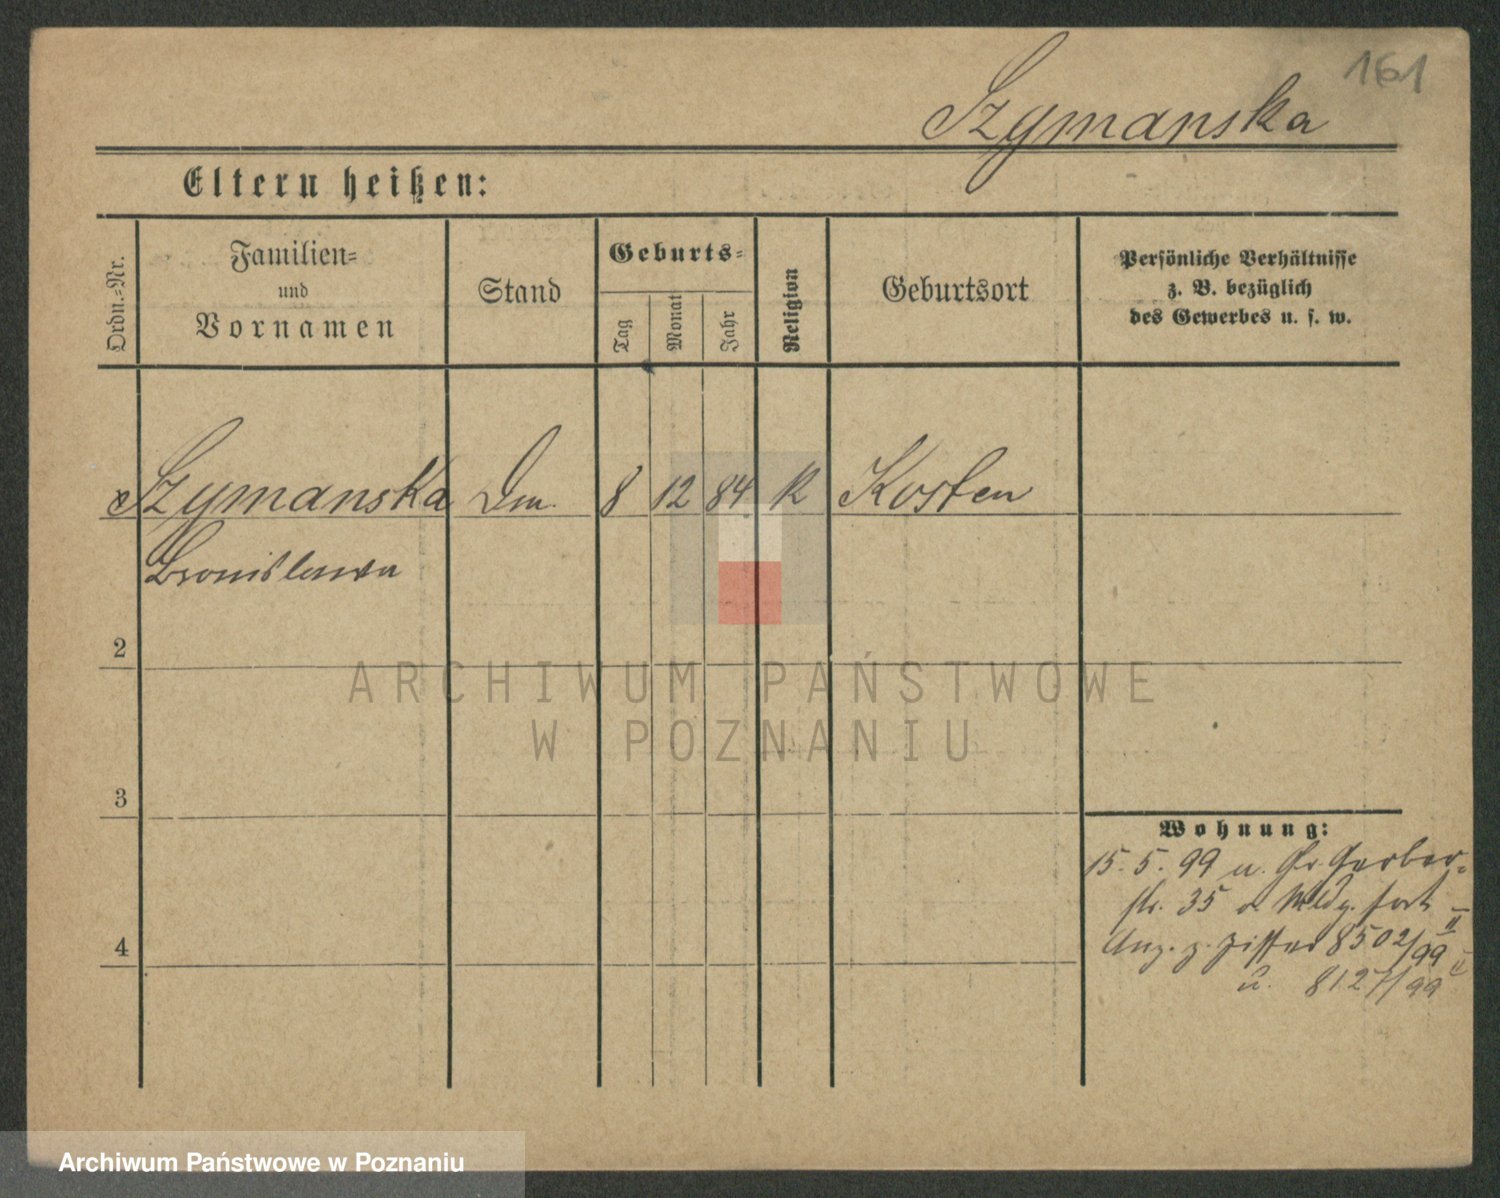 161
Szymanska
Eltern heißen:
Ordn.-Nr.
Familien-
und
Vornamen
Stand
Geburts-
Tag
Monat
Jahr
Religion
Geburtsort
Persönliche Verhältnisse
z. B. bezüglich
des Gewerbes u. s. w.
Szymanska Dm. 8 12 84 K Kosten
Bronislawa
2
3
4
Wohnung:
15. 5. 99 n. Gr. Gerber-
str. 35 Mldg. fort
Anz. z. Ziffer 8502/99 II
u. 8127/99
ARCHIWUM PAŃSTWOWE
W POZNANIU
Archiwum Państwowe w Poznaniu